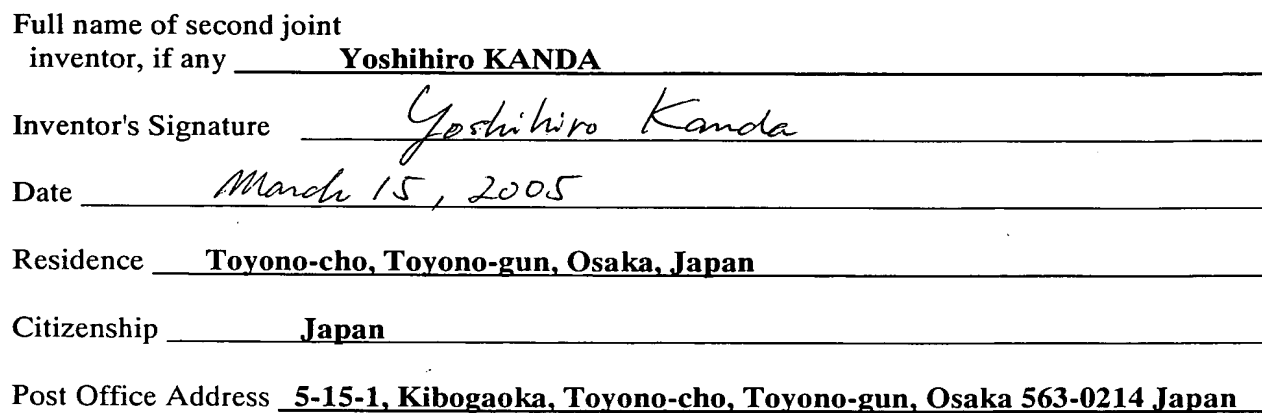 Full name of second joint
inventor, if any Yoshihiro KANDA
Inventor's Signature Yoshihiro Kanda
Date March 15, 2005
Residence Toyono-cho, Toyono-gun, Osaka, Japan
Citizenship Japan
Post Office Address 5-15-1, Kibogaoka, Toyono-cho, Toyono-gun, Osaka 563-0214 Japan